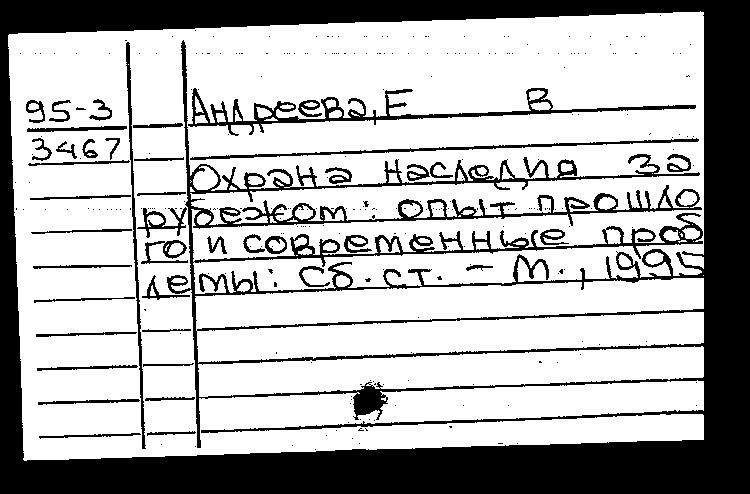 95-3 Андреева, Е В
3467
Охрана наследия за
рубежом: опыт прошло
го и современные проб
лемы: Сб. ст. - М., 1995